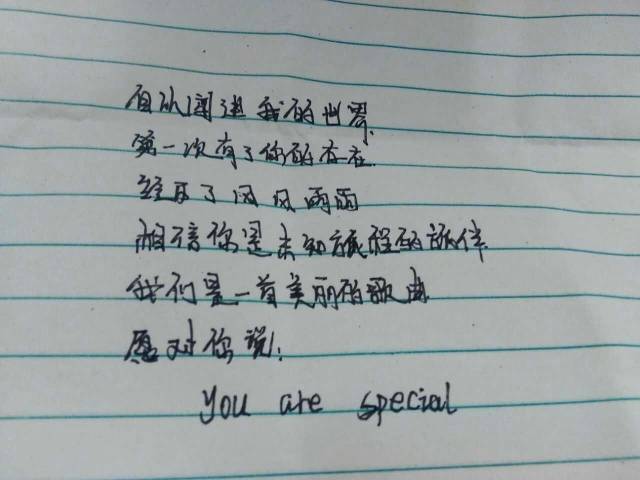 自从闯进我的世界,
第一次有了你的存在.
经历了风风雨雨
相信你是未知旅程的旅伴
我们是一首美丽的歌曲
愿对你说:
You are special